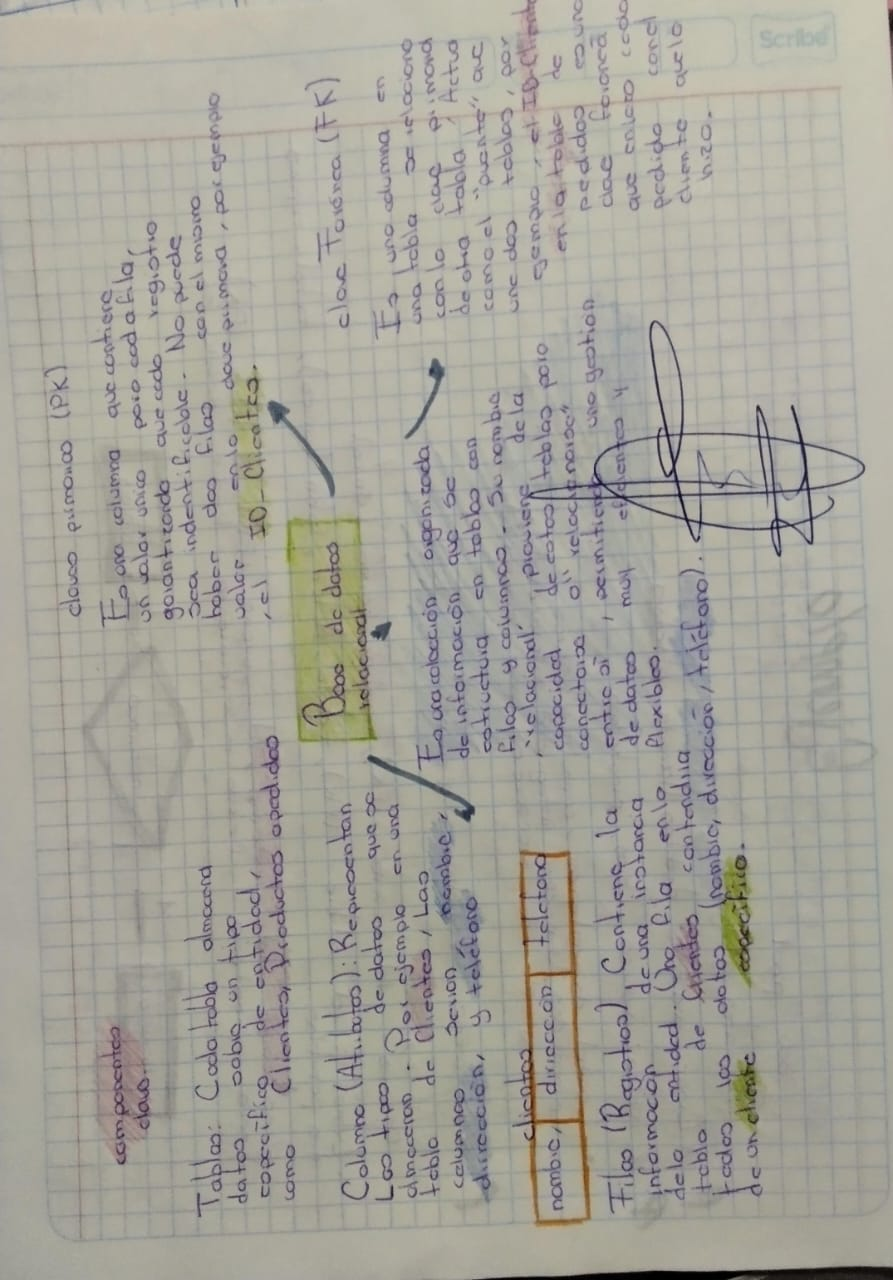 Scribe
componentes
clave.
Tablas: Cada tabla almacena
datos sobre un tipo
especifico de entidad,
como Clientes, Productos o pedidos
Columna (Atributos): Representan
Los tipos de datos que se
almacenan. Por ejemplo en una
tabla de Clientes, Las
columnas serian nombre,
dirección, y teléfono
clientes
nombre, dirección telefono
Filas (Registros) Contiene la
información de una instancia
dela entidad. Una fila en la
tabla de clientes contendria
todos los datos (nombre, dirección, teléfono).
de un cliente especifico.
Base de datos
relacional
Es una colección organizada
de información que se
estructura en tablas con
filas y columnas. Su nombre
"relacional" proviene de la
capacidad de estas tablas para
conectarse o "relacionarse"
entre sí, permitiendo una gestión
de datos muy eficientes y
flexibles.
clave primarea (PK)
Es una columna que contiene
un valor unico para cada fila,
garantizando que cada registro
sea indentificable. No puede
haber dos filas con el mismo
valor en la clave primaria, por ejemplo
, el ID_Clientes.
clave Foránea (FK)
Es una columna en
una tabla se relaciona
con la clave primaria
de otra tabla, Actua
como el "puente" que
une dos tablas, por
ejemplo, el ID-Cliente
en la tabla de
pedidos es una
clave foranea
que enlaza cada
pedido con el
cliente que lo
hizo.